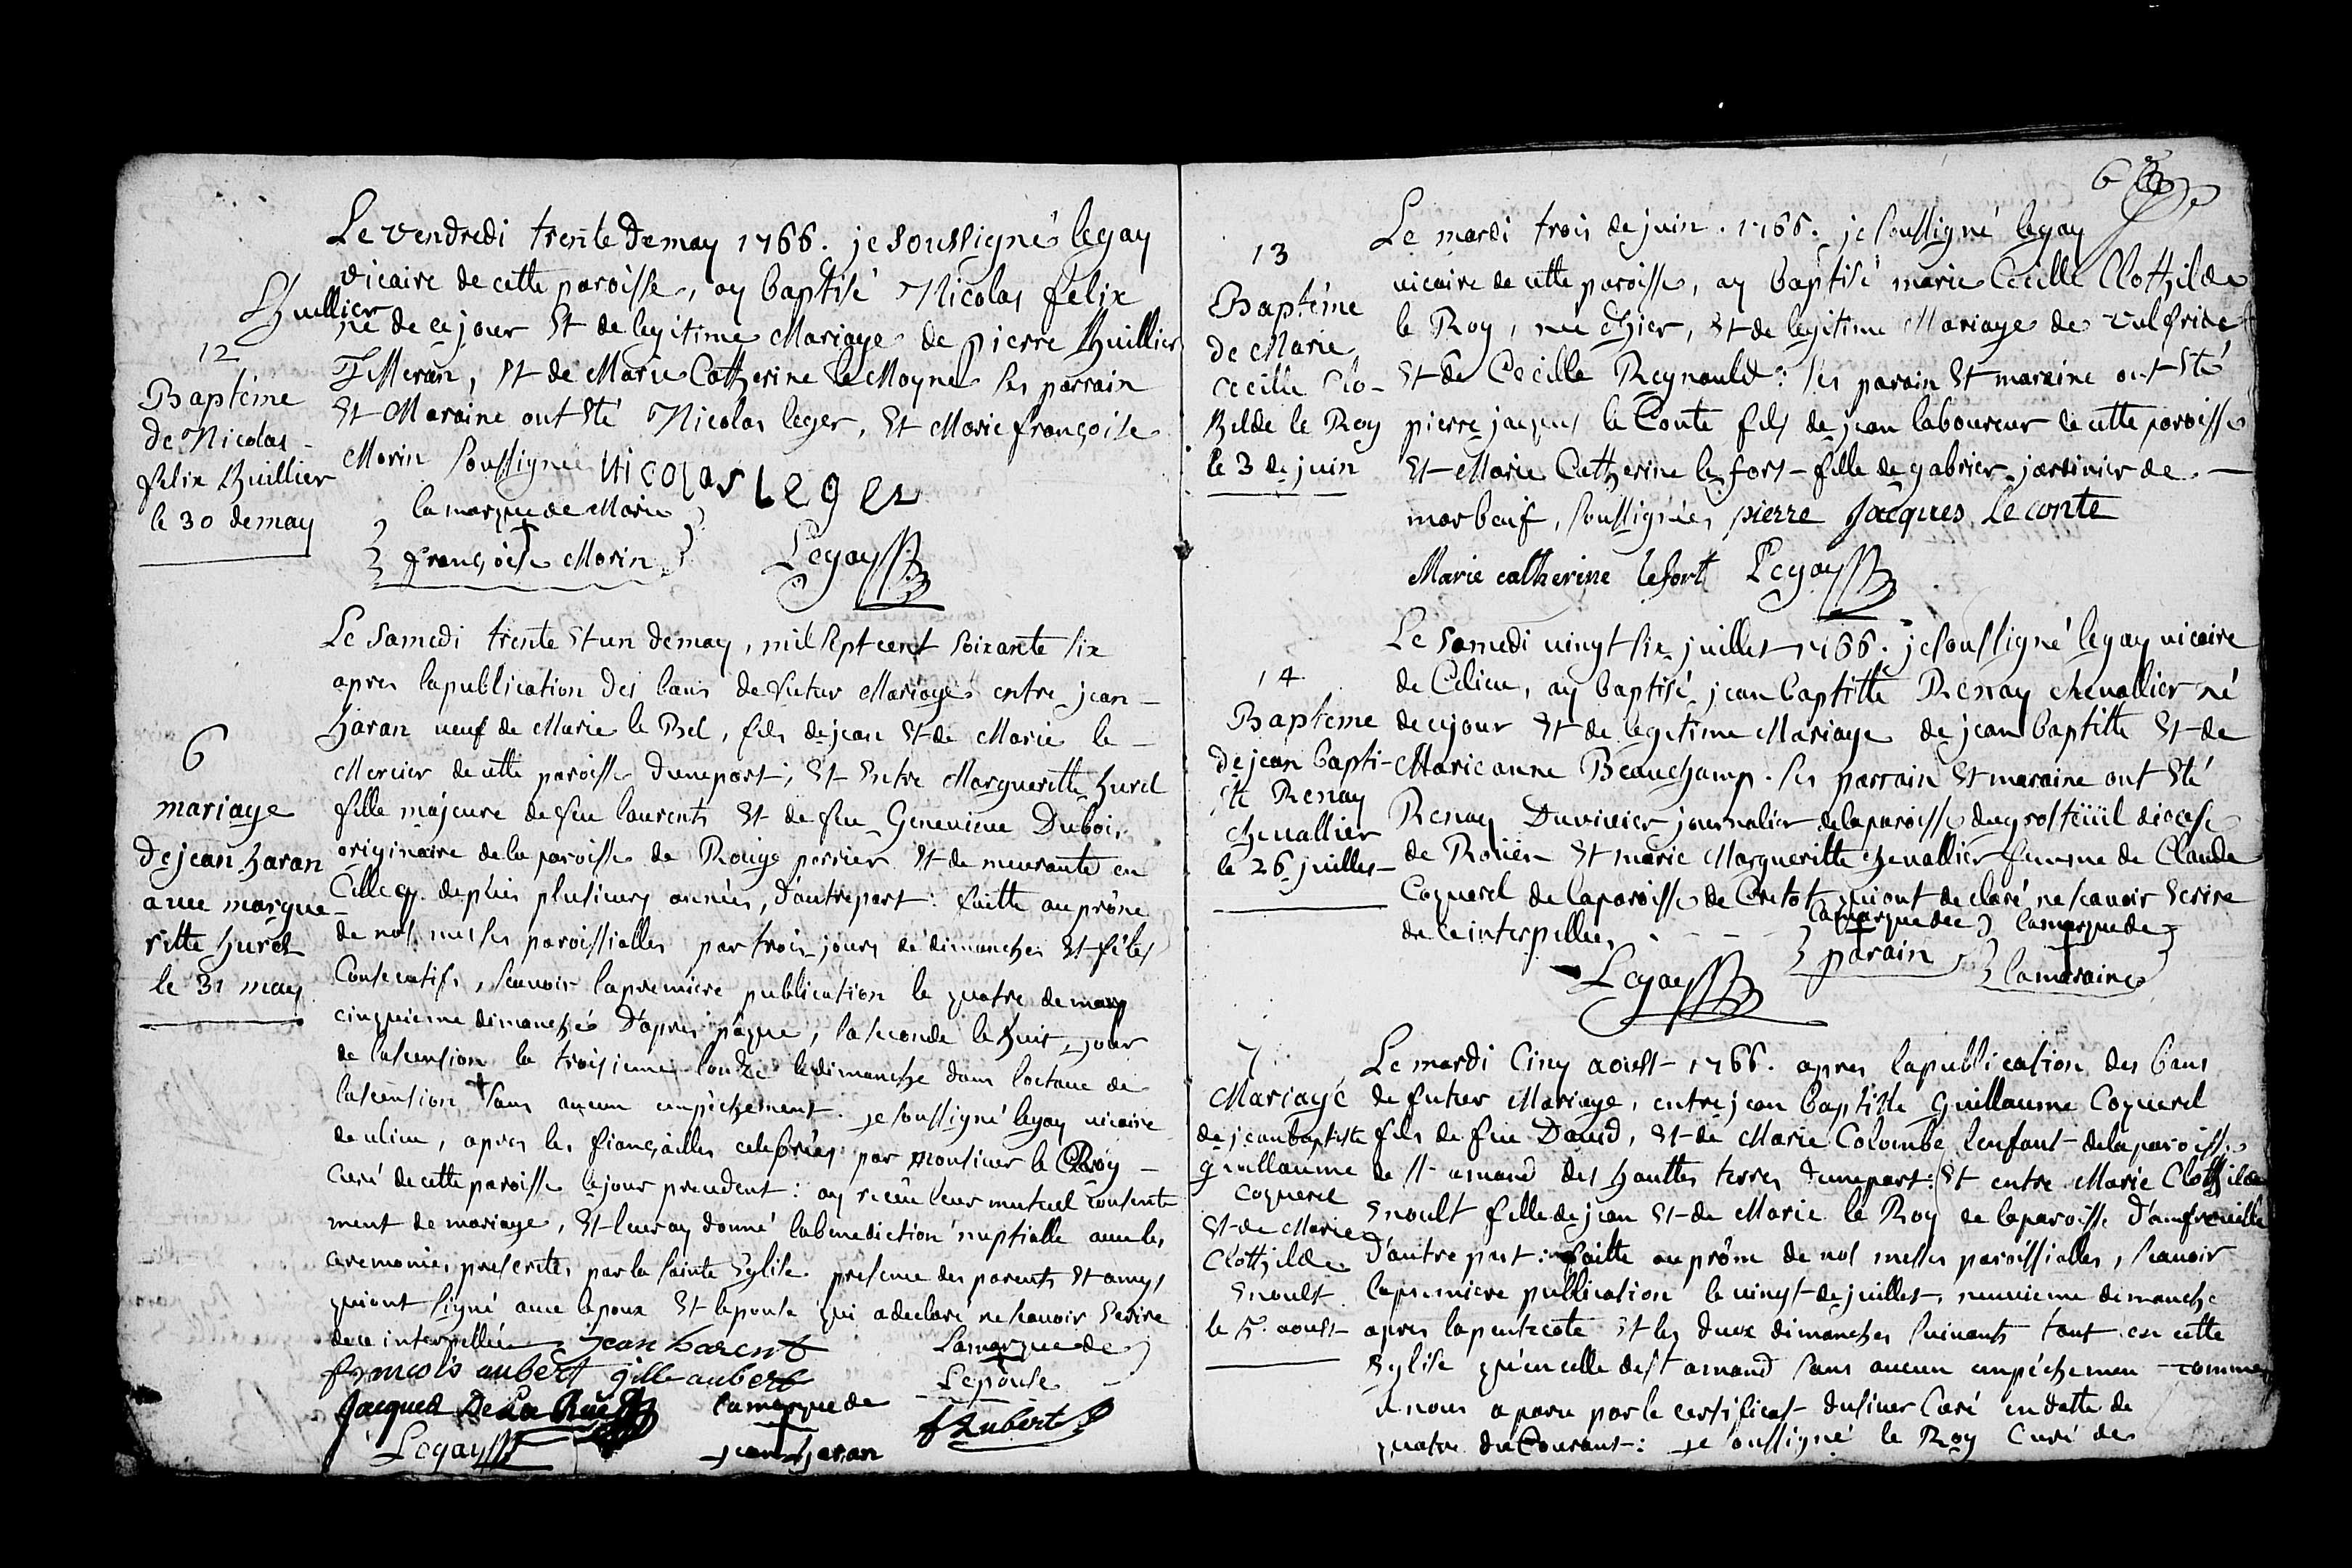 Le vendredi trente de may 1766. je soussigné legay
vicaire de cette paroisse, ay baptisé Nicolas felix
Lhuillier
né de ce jour Et de legitime Mariage de pierre Lhuillier
Tisseran, Et de Marie Catherine le Moyne Ses parrain
Et Maraine ont Eté Nicolas leger, Et Marie françoise
Morin Soussignée nicolas Leger
la marque de Marie
françoise Morin Legay
12
Baptême
de Nicolas
felix Lhuillier
le 30 de may
Le Samedi trente Et un de may, mil Sept cent Soixante Six
apres la publication des bans de futur Mariage entre jean
haran veuf de Marie le Bel, fils de jean Et de Marie le
Mercier de cette paroisse d'unepart; Et Entre Margueritte hurel
fille majeure de feu laurents Et de feu Genevieve Dubois
originaire de la paroisse de Rouge perrier Et demeurante en
Celle cy depuis plusieurs années, d'autrepart: faitte au prône
de nos messes paroissialles par trois jours de dimanches Et fêtes
Consecutifs, scavoir la premiere publication le quatre de may
cinquieme dimanche d'apres pâque, la seconde le huit, jour
de l'ascension la troisieme l'onze le dimanche dans l'octave de
l'ascension Sans aucun empêchement. je soussigné legay vicaire
de ce lieu, apres les fiançailles celebrées par Monsieur le Roy
Curé de cette paroisse le jour precedent: ay recêu leur mutuel consente
ment de mariage, Et leur ay donné la benediction nuptialle avec les
ceremonies prescrites par la Sainte Eglise. presence des parents Et amys
qui ont Signé avec l'epoux Et l'epouse qui a declaré ne scavoir Ecrire
de ce interpellée jean harent La marque de
françois aubert gille aubert L'epouse
Jacques De La Rüe la marque de Aubert
Legay jean haran
6
mariage
de jean haran
avec margue
ritte hurel
le 31 may
6
Le mardi trois de juin. 1766. je Soussigné legay
vicaire de cette paroisse, ay baptisé marie Cecille Clothilde
le Roy, née d'hier, Et de legitime Mariage de vulfride
Et de Cecille Reynauld: Ses parain Et maraine ont Eté
pierre jacques le Conte fils de jean laboureur de cette paroisse
Et Marie Catherine le fort fille de gabrier jardinier de
marbeuf, Soussignés, pierre Jacques Le conte
Marie catherine lefort Legay
13
Baptême
de Marie
Cecille Clo-
thilde le Roy
le 3 de juin
Le Samedi vingt Six juillet 1766. je Soussigné legay vicaire
de Celieu, ay baptisé jean baptitte Renay chevallier né
de cejour Et de legitime Mariage de jean baptitte Et de
Marie anne Beauchamp. Ses parrain Et maraine ont Eté
Renay Duvivier journalier de la paroisse du grosteüil diocese
de Roüen Et marie Margueritte chevallier femme de Claude
Coquerel de la paroisse de Cretot qui ont declaré ne scavoir Ecrire
de ce interpellés, la marque de la marque de
Legay parain la maraine
14
Baptême
de jean bapti-
te Renay
chevallier
le 26 juillet
Le mardi Cinq aoust 1766. apres la publication des bans
de futur Mariage, entre jean baptiste guillaume Coquerel
fils de feu David, Et de Marie Colombe l'enfant de la paroisse
de St amand des hauttes terres d'unepart: Et entre Marie Clothilde
Enoult fille de jean Et de Marie le Roy de la paroisse d'amfreville
d'autre part: faitte au prône de nos messes paroissialles, scavoir
la premiere publication le vingt de juillet, neuvieme dimanche
apres la pentecôte Et les deux dimanches Suivants tant en cette
Eglise qu'en celle de St amand Sans aucun empêchement comme
il nous a paru par le certificat du Sieur Curé en datte de
quatre du Courant: je Soussigné le Roy Curé de
7
Mariage
de jean baptiste
guillaume
coquerel
Et de Marie
Clothilde
Enoult
le 5. aoust